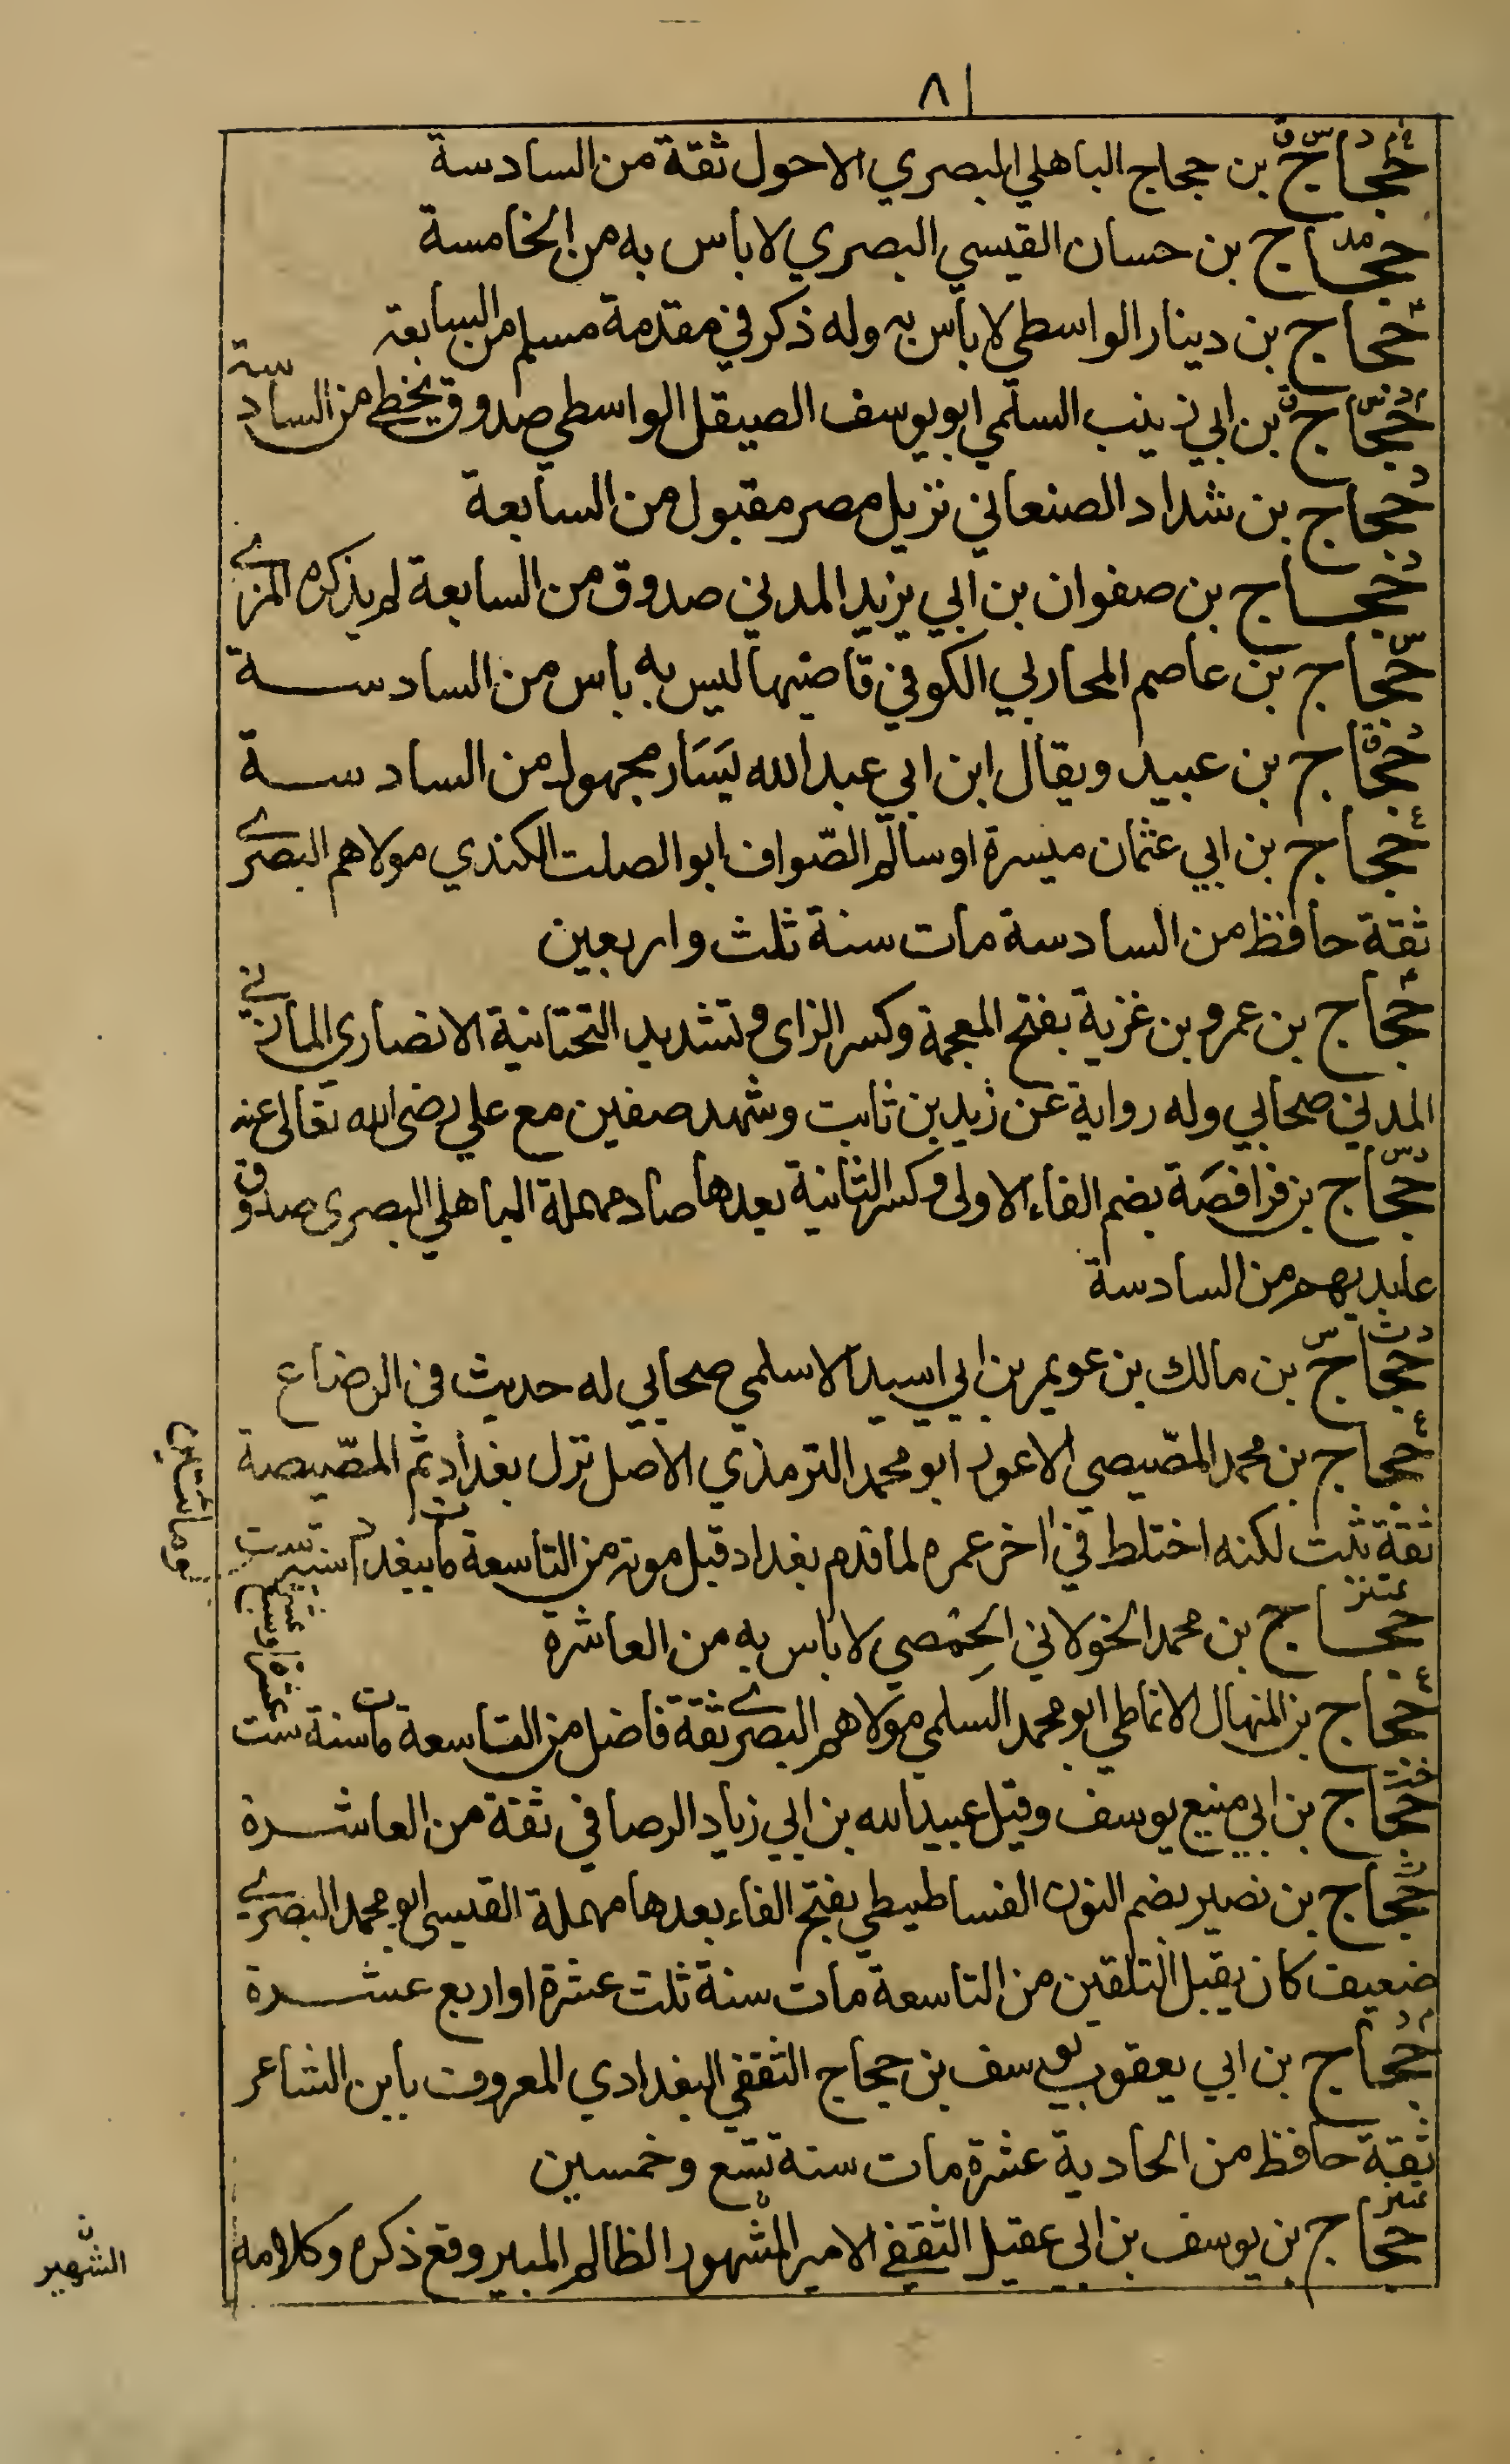 ٨١
خ م د س ق
حجاج بن حجاج الباهلي البصري الاحول ثقة من السادسة
مد
حجاج بن حسان القيسي البصري لا باس به من الخامسة
حجاج بن دينار الواسطي لا بأس به وله ذكر في مقدمة مسلم من السابعة
حجاج بن ابي زينب السلمي ابو يوسف الصيقل الواسطي صدوق يخطئ من السادسة
د
حجاج بن شداد الصنعاني نزيل مصر مقبول من السابعة
د
حجاج بن صفوان بن ابي يزيد المدني صدوق من السابعة لم يذكره المزي
س
حجاج بن عاصم المحاربي الكوفي قاضيها ليس به باس من السادسة
د ق
حجاج بن عبيد ويقال ابن ابي عبد الله يَسَار مجهول من السادسة
ع
حجاج بن ابي عثمان ميسرة او سالم الصّواف ابو الصلت الكندي مولاهم البصري
ثقة حافظ من السادسة مات سنة ثلث واربعين
حجاج بن عمرو بن غزية بفتح المعجمة وكسر الزاى وتشديد التحتانية الانصاري المازني
المدني صحابي وله رواية عن زيد بن ثابت وشهد صفين مع علي رضى الله تعالى عنه
د س
حجاج بن فرافصَة بضم الفاء الاولى وكسر الثانية بعدها صاد مهملة الباهلي البصرى صدوق
عابد يهم من السادسة
د ت س
حجاج بن مالك بن عويمر بن ابي اسيد الاسلمي صحابي له حديث في الرضاع
ع
حجاج بن محمد المصّيصي الاعور ابو محمد الترمذي الاصل نزل بغداد ثم المصّيصة
ثقة ثبت لكنه اختلط في اخر عمره لما قدم بغداد قبل موته من التاسعة مات ببغداد سنة ست
ومائتين
تمييز
حجاج بن محمد الخولاني الحِمْصي لا باس به من العاشرة
ع
حجاج بن المنهال الانماطي ابو محمد السلمي مولاهم البصري ثقة فاضل من التاسعة مات سنة ست
عشرة او سبع عشرة
خت
حجاج بن ابي منيع يوسف وقيل عبيد الله بن ابي زياد الرصافي ثقة من العاشرة
ت
حجاج بن نصير بضم النون الفساطيطي بفتح الفاء بعدها مهملة القيسي ابو محمد البصري
ضعيف كان يقبل التلقين من التاسعة مات سنة ثلث عشرة او اربع عشرة
م د
حجاج بن ابي يعقوب يوسف بن حجاج الثقفي البغدادي المعروف بابن الشاعر
ثقة حافظ من الحادية عشرة مات سنة تسع وخمسين
تمييز
حجاج بن يوسف بن ابي عقيل الثقفي الامير المشهور الظالم المبير وقع ذكره وكلامه
الشهير